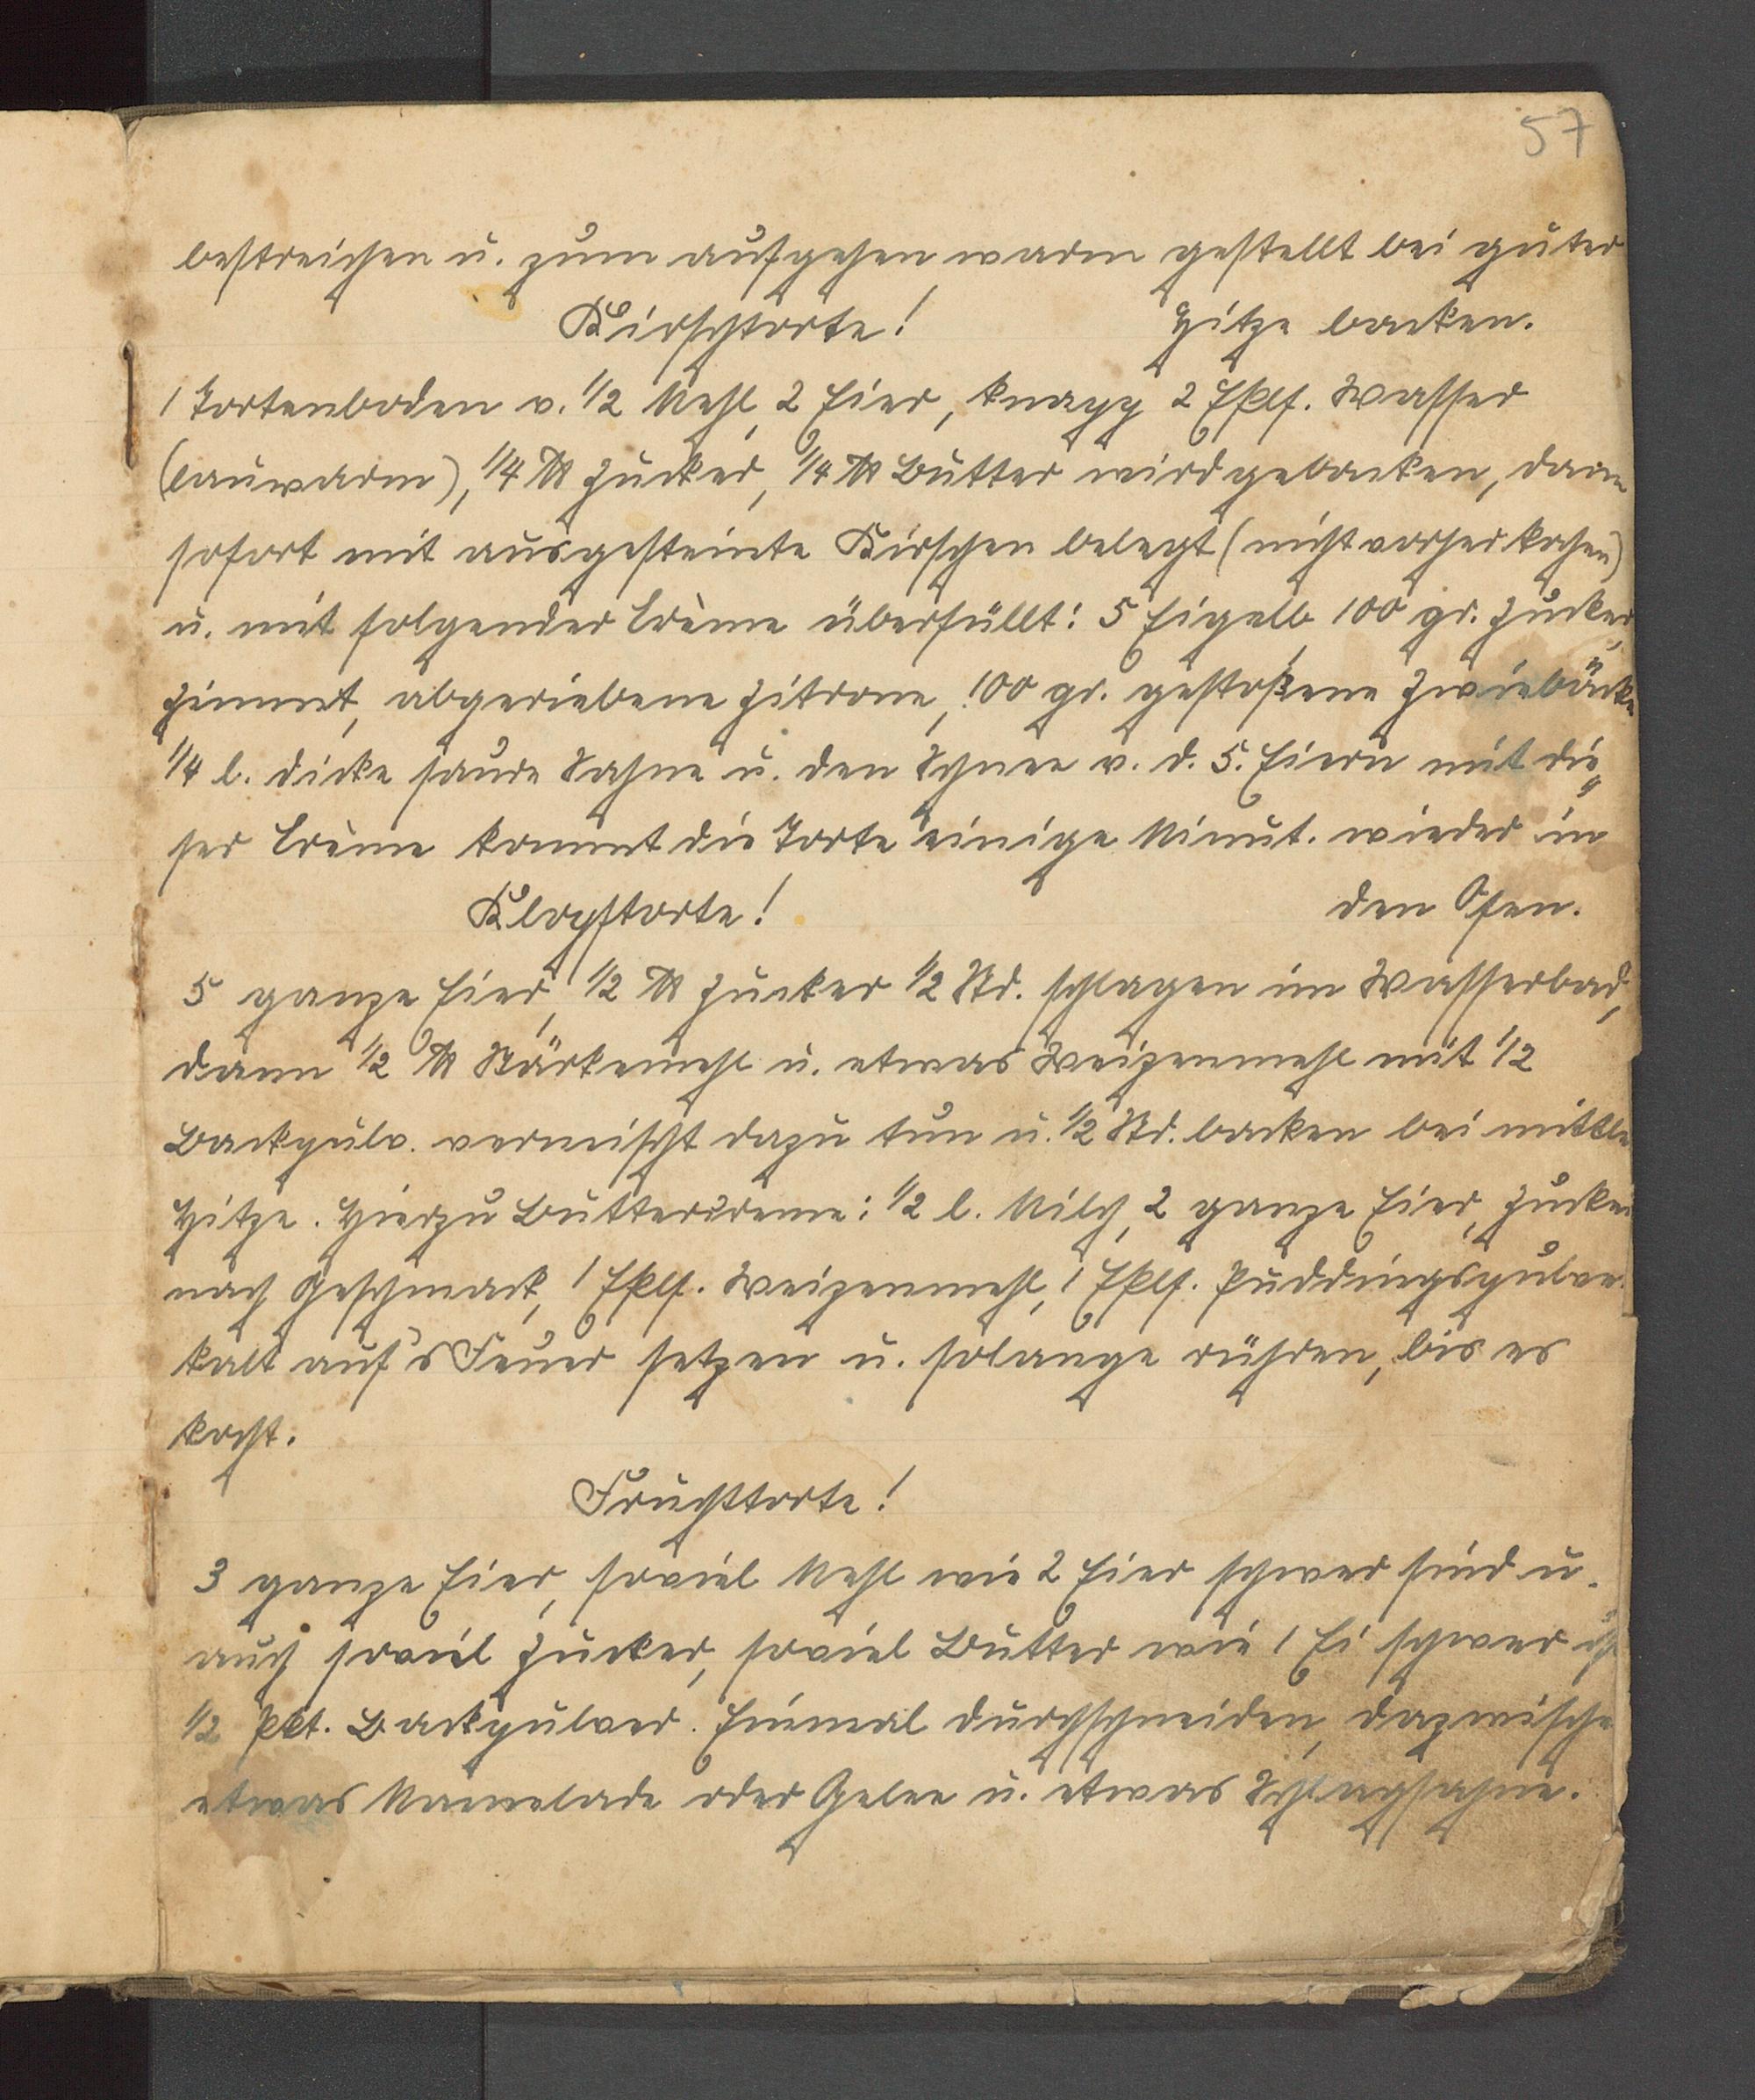 57
bestreichen u. zum aufgehen warm gestellt bei guter
Hitze backen.
Kirschtorte!
1 Tortenboden v. 1/2 Mehl, 2 Eier, knapp 2 Eßlf. Wasser
(lauwarm), 1/4 ℔ Zucker, 1/4 ℔ Butter wird gebacken, dann
sofort mit ausgesteinte Kirschen belegt (nicht vorher kochen)
u. mit folgender Crème überfüllt: 5 Eigelb, 100 gr. Zucker,
Zimmt, abgeriebene Zitrone, 100 gr. gestoßene Zwiebäcke
1/4 l. dicke saure Sahne u. den Schnee v. d. 5. Eiern mit die„
ser Crème kommt die Torte einige Minut. wieder in
den Ofen.
Klopstorte!
5 ganze Eier, 1/2 ℔ Zucker 1/2 Std. schlagen im Wasserbad,
dann 1/2 ℔ Stärkemehl u. etwas Weizenmehl mit 1/2
Backpulv. vermischt dazu tun u. 1/2 Std. backen bei mittle
Hitze. Hierzu Buttercreme: 1/2 l. Milch, 2 ganze Eier, Zucker
nach Geschmack, 1 Eßlf. Weizenmehl, 1 Eßlf. Puddingspulve.
kalt auf's Feuer setzen u. solange rühren, bis es
kocht.
Fruchttorte!
3 ganze Eier, soviel Mehl wie 2 Eier schwer sind u.
auch soviel Zucker, soviel Butter wie 1 Ei schwer ist
1/2 Pkt. Backpulver. Einmal durchschneiden, dazwische
etwas Mamelade oder Gelee u. etwas Schlagsahne.